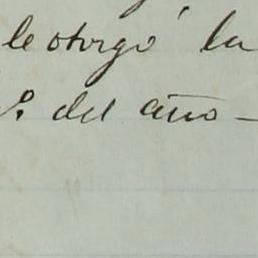 le otorgó la
del año -